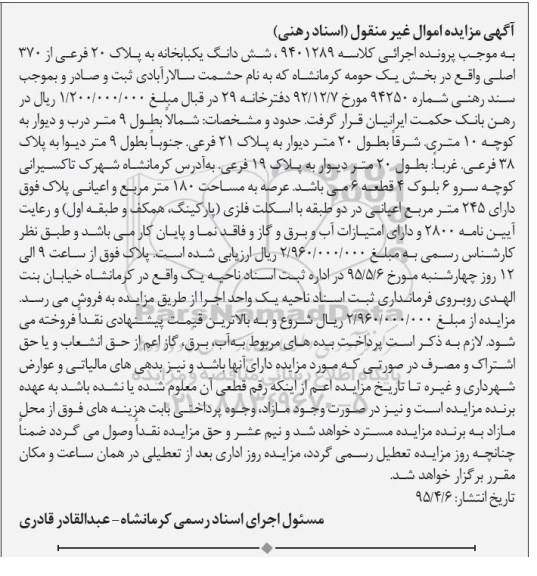 آگهی مزایده اموال غیر منقول (اسناد رهنی)
به موجب پرونده اجرائی کلاسه ۹۴۰۱۲۸۹ ، شش دانگ یکبابخانه به پلاک ۲۰ فرعی از ۳۷۰
اصلی واقع در بخش یک حومه کرمانشاه که به نام حشمت سالارآبادی ثبت و صادر و بموجب
سند رهنی شماره ۹۴۲۵۰ مورخ ۹۲/۱۲/۷ دفترخانه ۲۹ در قبال مبلغ ۱/۲۰۰/۰۰۰/۰۰۰ ریال در
رهن بانک حکمت ایرانیان قرار گرفت. حدود و مشخصات: شمالاً بطول ۹ متر درب و دیوار به
کوچه ۱۰ متری. شرقاً بطول ۲۰ متر دیوار به پلاک ۲۱ فرعی. جنوباً بطول ۹ متر دیوا به پلاک
۳۸ فرعی. غرباً: بطول ۲۰ متر دیوار به پلاک ۱۹ فرعی .به‌آدرس کرمانشاه شهرک تاکسیرانی
کوچه سرو ۶ بلوک ۴ قطعه ۶ می باشد. عرصه به مساحت ۱۸۰ متر مربع و اعیانی پلاک فوق
دارای ۲۴۵ متر مربع اعیانی در دو طبقه با اسکلت فلزی (پارکینگ، همکف و طبقه اول) و رعایت
آیین نامه ۲۸۰۰ و دارای امتیازات آب و برق و گاز و فاقد نما و پایان کار می باشد و طبق نظر
کارشناس رسمی به مبلغ ۲/۹۶۰/۰۰۰/۰۰۰ ریال ارزیابی شده است. پلاک فوق از ساعت ۹ الی
۱۲ روز چهارشنبه مورخ ۹۵/۵/۶ در اداره ثبت اسناد ناحیه یک واقع در کرمانشاه خیابان بنت
الهدی روبروی فرمانداری ثبت اسناد ناحیه یک واحد اجرا از طریق مزایده به فروش می رسد.
مزایده از مبلغ ۲/۹۶۰/۰۰۰/۰۰۰ ریال شروع و به بالاترین قیمت پیشنهادی نقداً فروخته می
شود. لازم به ذکر است پرداخت بده های مربوط به آب، برق، گاز اعم از حق انشعاب و یا حق
اشتراک و مصرف در صورتی که مورد مزایده دارای آنها باشد و نیز بدهی های مالیاتی و عوارض
شهرداری و غیره تا تاریخ مزایده اعم از اینکه رقم قطعی آن معلوم شده یا نشده باشد به عهده
برنده مزایده است و نیز در صورت وجود مازاد، وجوه پرداختی بابت هزینه های فوق از محل
مازاد به برنده مزایده مسترد خواهد شد و نیم عشر و حق مزایده نقداً وصول می گردد ضمناً
چنانچه روز مزایده تعطیل رسمی گردد، مزایده روز اداری بعد از تعطیلی در همان ساعت و مکان
مقرر برگزار خواهد شد.
تاریخ انتشار: ۹۵/۴/۶
مسئول اجرای اسناد رسمی کرمانشاه - عبدالقادر قادری